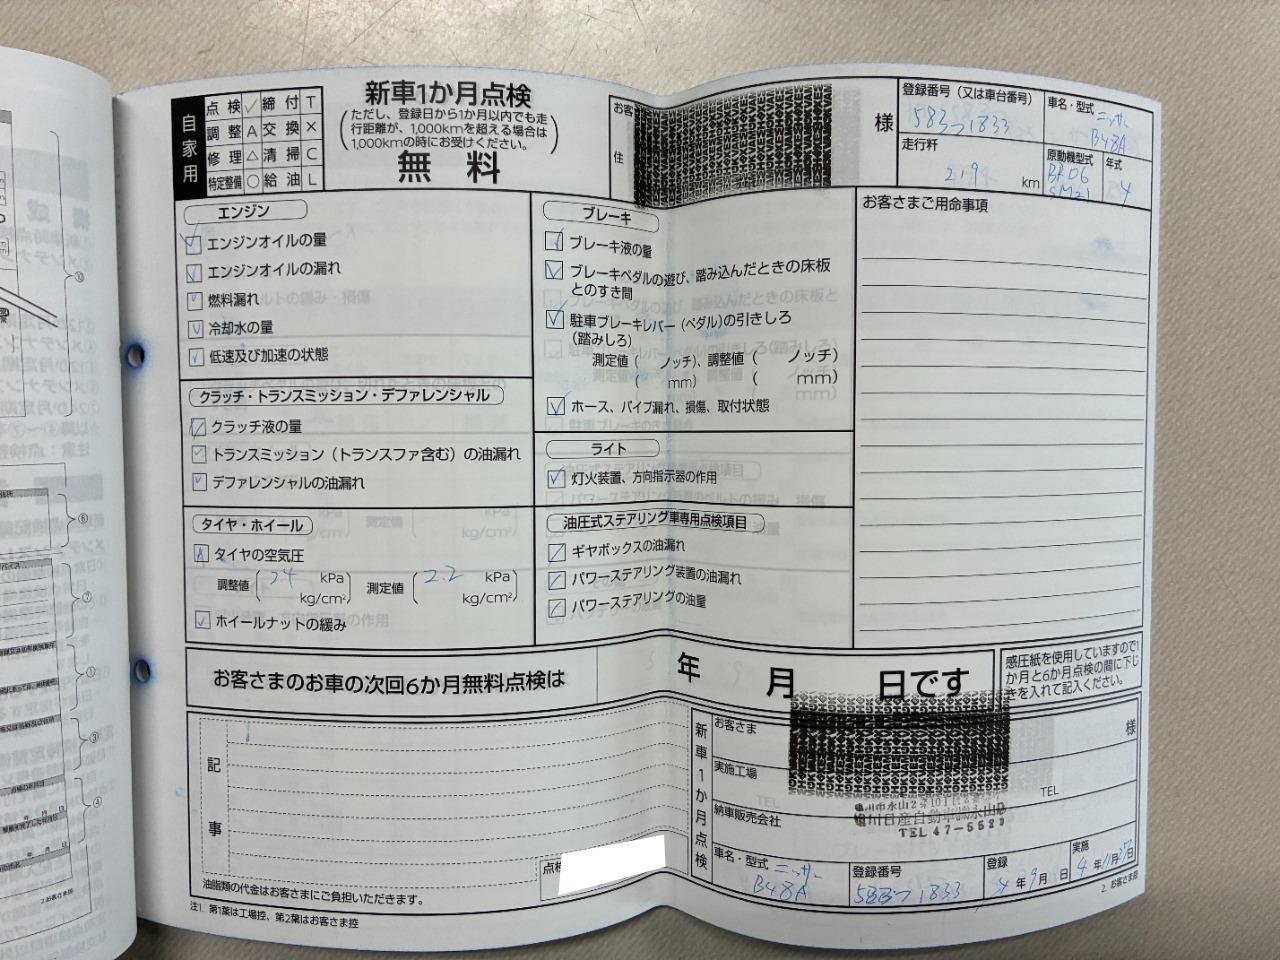 自家用
点検 ✓ 締付 T
調整 A 交換 ×
修理 △ 清掃 C
特定整備 ○ 給油 L
新車1か月点検
(ただし、登録日から1か月以内でも走
行距離が、1,000kmを超える場合は
1,000kmの時にお受けください。)
無料
お客
住
様
登録番号(又は車台番号)
583フ1833
車名・型式
ニッサン
B48A
走行粁
km
原動機型式
BR06
SM21
年式
4
エンジン
エンジンオイルの量
エンジンオイルの漏れ
燃料漏れ
冷却水の量
低速及び加速の状態
クラッチ・トランスミッション・デファレンシャル
クラッチ液の量
トランスミッション(トランスファ含む)の油漏れ
デファレンシャルの油漏れ
タイヤ・ホイール
A タイヤの空気圧
調整値( 2.4 kPa kg/cm²) 測定値( 2.2 kPa kg/cm²)
ホイールナットの緩み
ブレーキ
ブレーキ液の量
ブレーキペダルの遊び、踏み込んだときの床板
とのすき間
駐車ブレーキレバー(ペダル)の引きしろ
(踏みしろ)
測定値( ノッチ)、調整値( ノッチ)
( mm) ( mm)
ホース、パイプ漏れ、損傷、取付状態
ライト
灯火装置、方向指示器の作用
油圧式ステアリング車専用点検項目
ギヤボックスの油漏れ
パワーステアリング装置の油漏れ
パワーステアリングの油量
お客さまご用命事項
お客さまのお車の次回6か月無料点検は 年 月 日です
感圧紙を使用していますので1
か月と6か月点検の間に下じ
きを入れて記入ください。
記事
油脂類の代金はお客さまにご負担いただきます。
点検
新車1か月点検
お客さま 様
実施工場
TEL
納車販売会社
旭川日産自動車㈱永山
車名・型式
ニッサン
B48A
登録番号
583フ1833
登録
4年9月 日
実施
4年11月27日
注1. 第1葉は工場控、第2葉はお客さま控
2. お客さま控